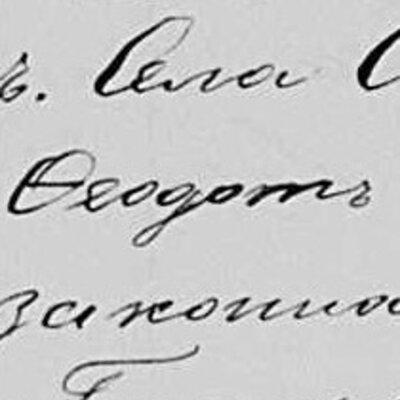 ъ. Села С
Ѳеодотъ
законно